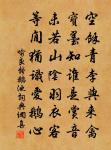 空餘青李與來禽
寶墨誰是賞音
未若山陰羽衣客
等閒猶識愛鵝心
喻良能鵝池詞典網